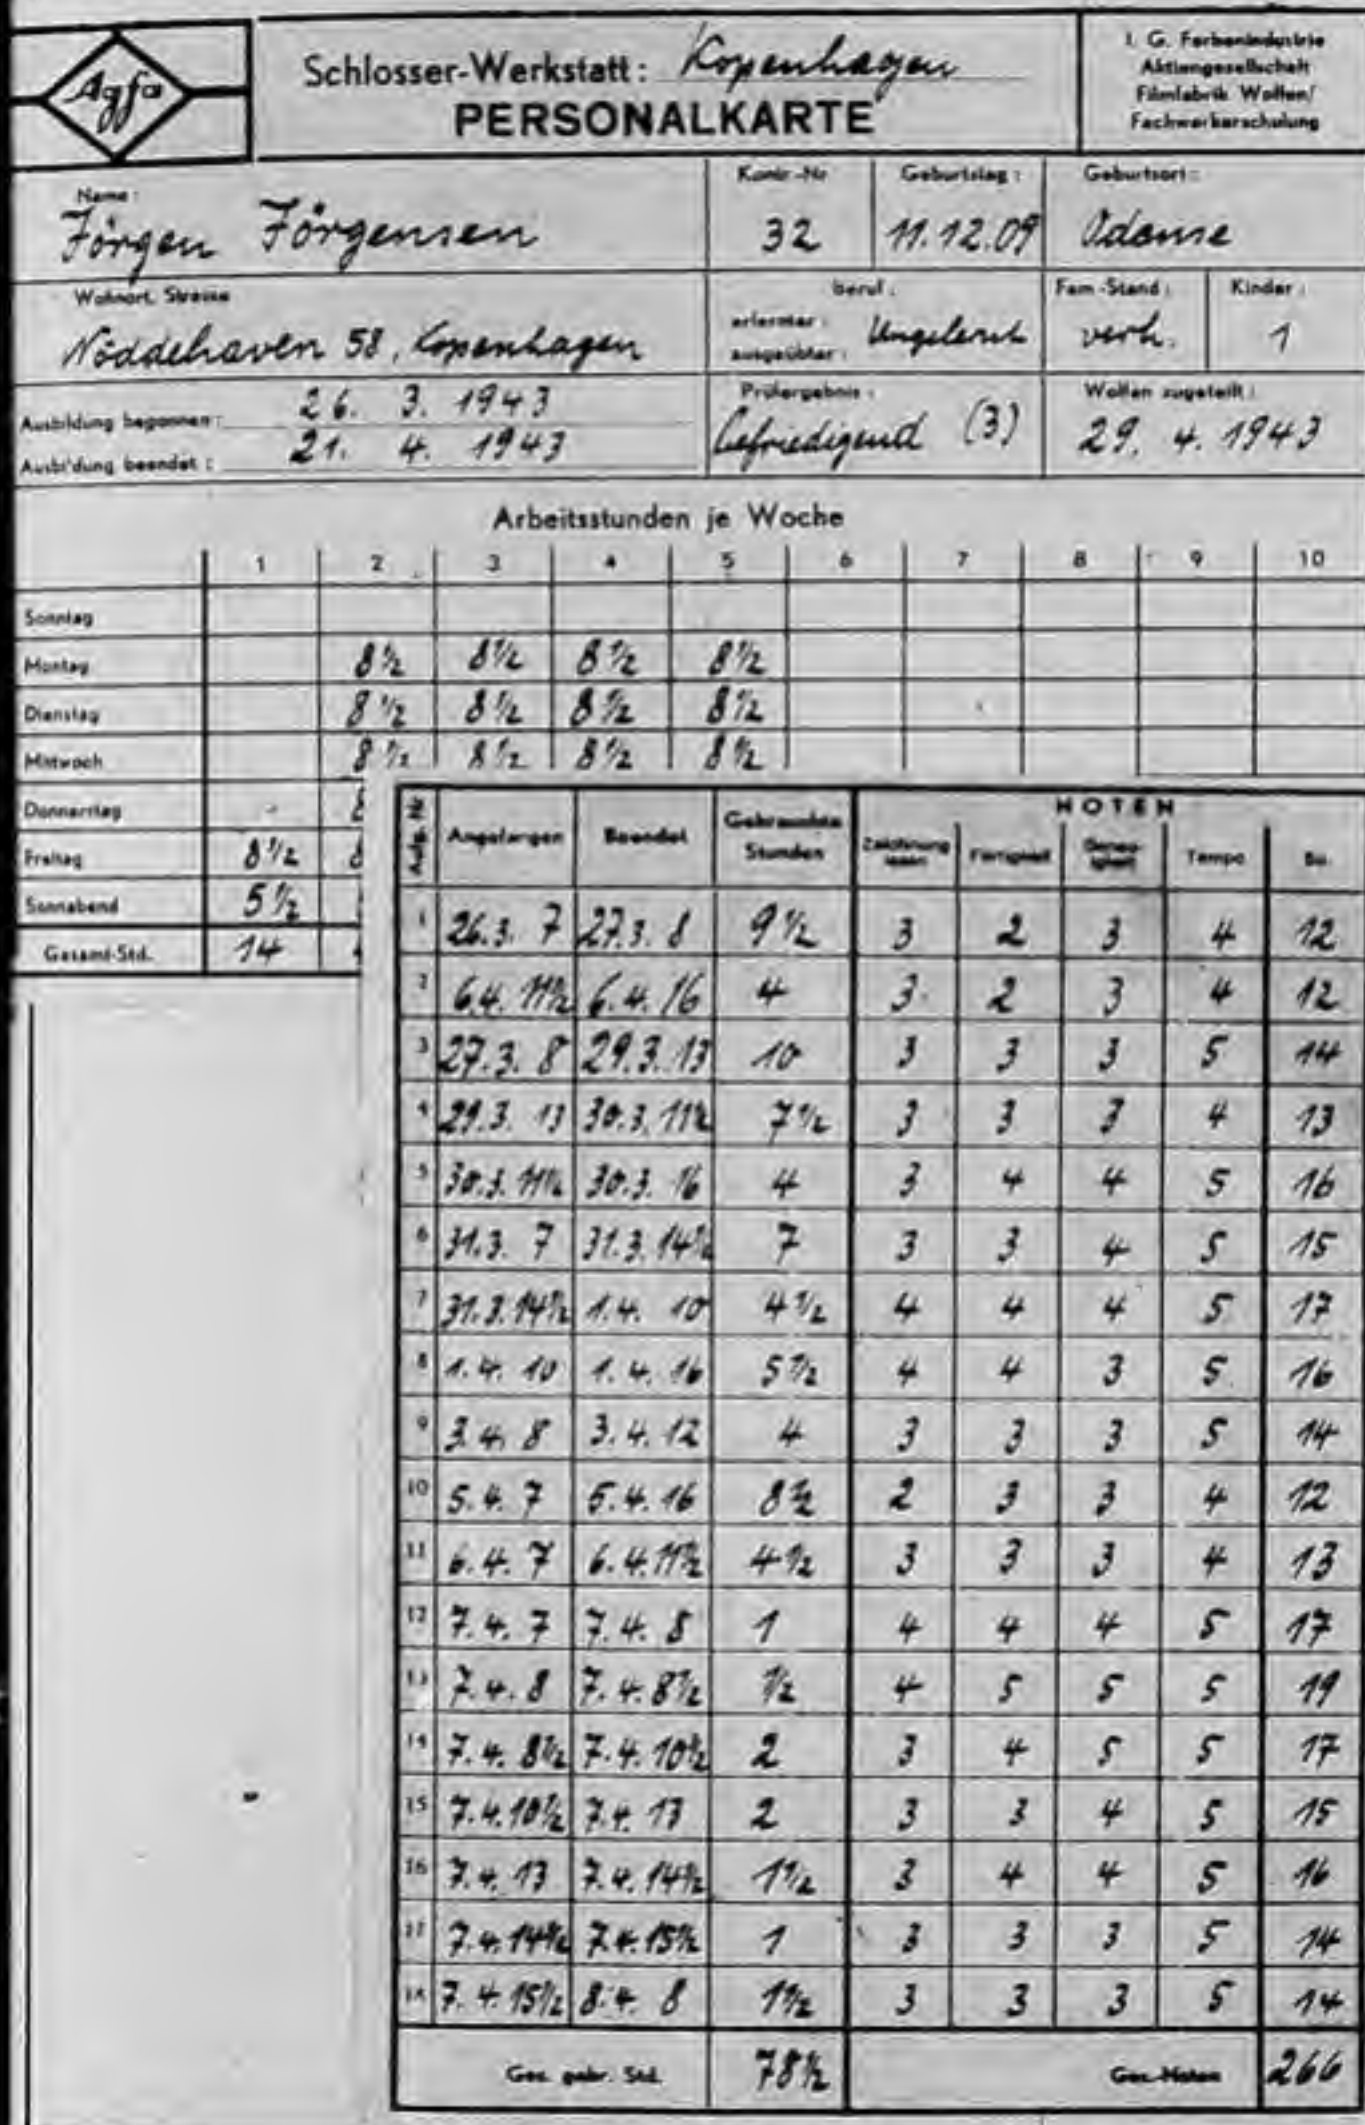 Agfa
Schlosser-Werkstatt: Kopenhagen
PERSONALKARTE
I. G. Farbenindustrie
Aktiengesellschaft
Filmfabrik Wolfen/
Fachwerkerschulung
Name: Kontr.-Nr Geburtstag: Geburtsort:
Jörgen Jörgensen 32 11.12.09 Odense
Wohnort, Strasse beruf: Fam.-Stand: Kinder:
Nöddehaven 58, Kopenhagen erlernter: ausgeübter: Ungelernt verh. 1
Ausbildung begonnen: 26. 3. 1943 Prüfergebnis: Wolfen zugeteilt:
Ausbildung beendet: 21. 4. 1943 befriedigend (3) 29. 4. 1943
Arbeitsstunden je Woche
1 2 3 4 5 6 7 8 9 10
Sonntag
Montag 8½ 8½ 8½ 8½
Dienstag 8½ 8½ 8½ 8½
Mittwoch 8½ 8½ 8½ 8½
Donnerstag
Freitag 8½
Sonnabend 5½
Gesamt-Std. 14
NOTEN
Aufg. Nr Angefangen Beendet Gebrauchte Stunden Zeichnung lesen Fertigkeit Genauigkeit Tempo Su.
1 26.3. 7 27.3. 8 9½ 3 2 3 4 12
2 6.4. 11½ 6.4. 16 4 3 2 3 4 12
3 27.3. 8 29.3. 13 10 3 3 3 5 14
4 29.3. 13 30.3. 11½ 7½ 3 3 3 4 13
5 30.3. 11½ 30.3. 16 4 3 4 4 5 16
6 31.3. 7 31.3. 14½ 7 3 3 4 5 15
7 31.3. 14½ 1.4. 10 4½ 4 4 4 5 17
8 1.4. 10 1.4. 16 5½ 4 4 3 5 16
9 3.4. 8 3.4. 12 4 3 3 3 5 14
10 5.4. 7 5.4. 16 8½ 2 3 3 4 12
11 6.4. 7 6.4. 11½ 4½ 3 3 3 4 13
12 7.4. 7 7.4. 8 1 4 4 4 5 17
13 7.4. 8 7.4. 8½ ½ 4 5 5 5 19
14 7.4. 8½ 7.4. 10½ 2 3 4 5 5 17
15 7.4. 10½ 7.4. 13 2 3 3 4 5 15
16 7.4. 13 7.4. 14½ 1½ 3 4 4 5 16
17 7.4. 14½ 7.4. 15½ 1 3 3 3 5 14
18 7.4. 15½ 8.4. 8 1½ 3 3 3 5 14
Ges. gebr. Std. 78½ Ges.-Noten 266